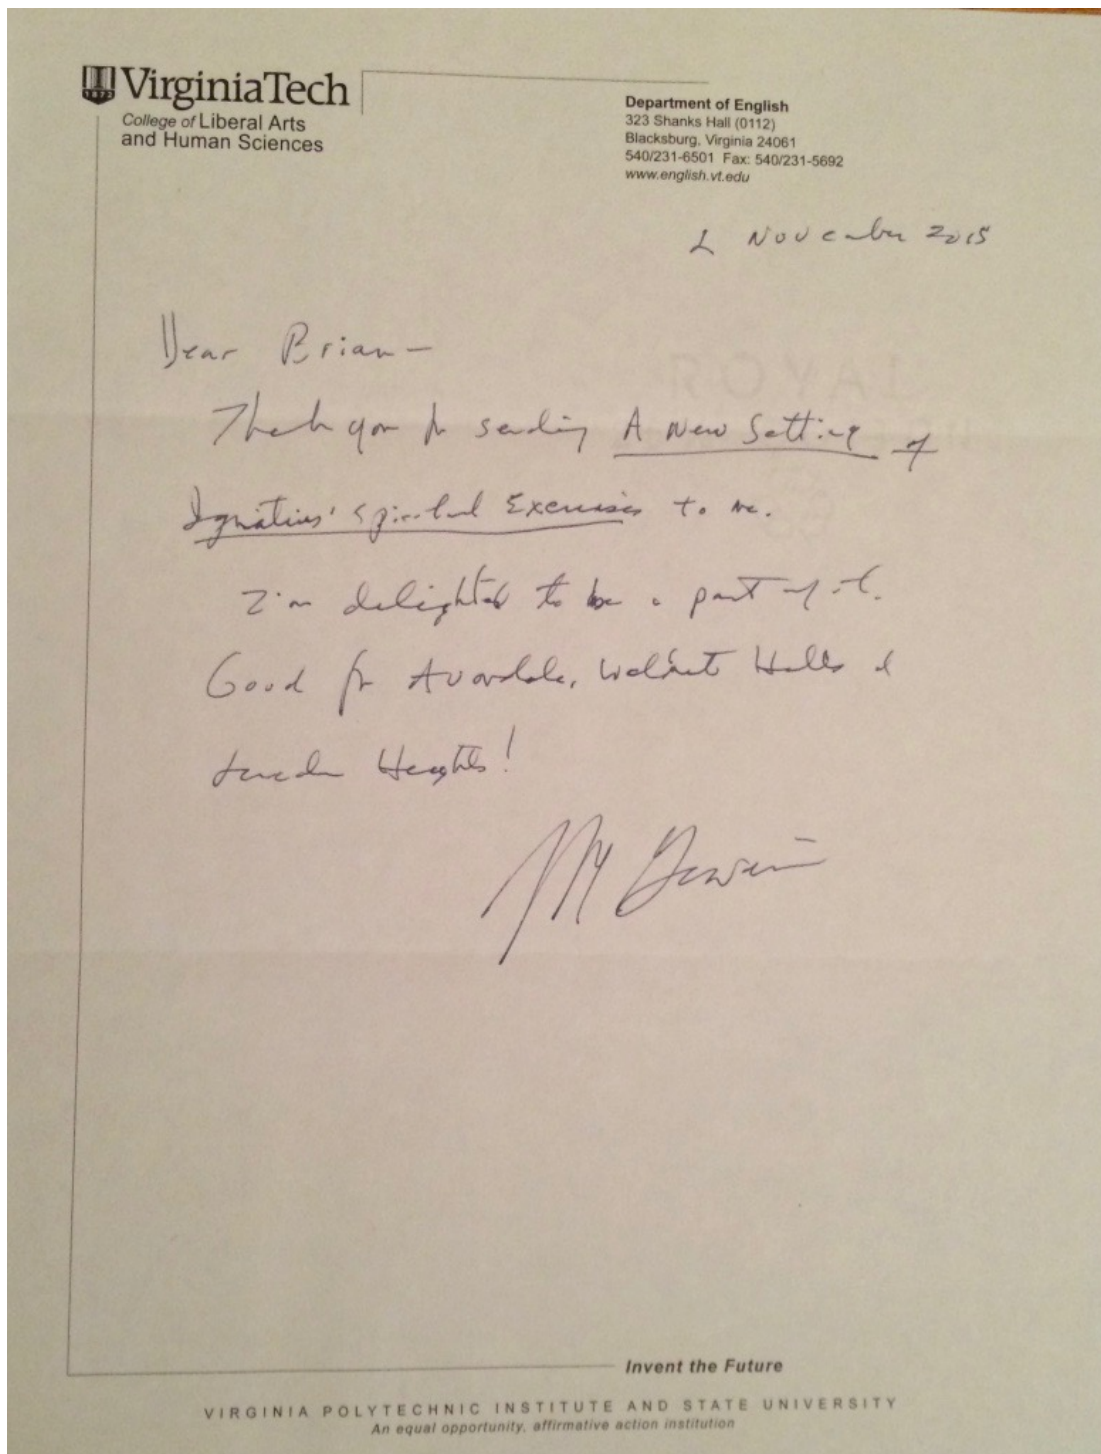 1872
VirginiaTech
College of Liberal Arts
and Human Sciences
Department of English
323 Shanks Hall (0112)
Blacksburg, Virginia 24061
540/231-6501 Fax: 540/231-5692
www.english.vt.edu
November 2015
Dear Brian—
Thank you for sending A New Setting of
Ignatius' Spiritual Exercises to me.
I'm delighted to be a part of it.
Good for Avondale, Walnut Hills &
Heights!
Invent the Future
VIRGINIA POLYTECHNIC INSTITUTE AND STATE UNIVERSITY
An equal opportunity, affirmative action institution